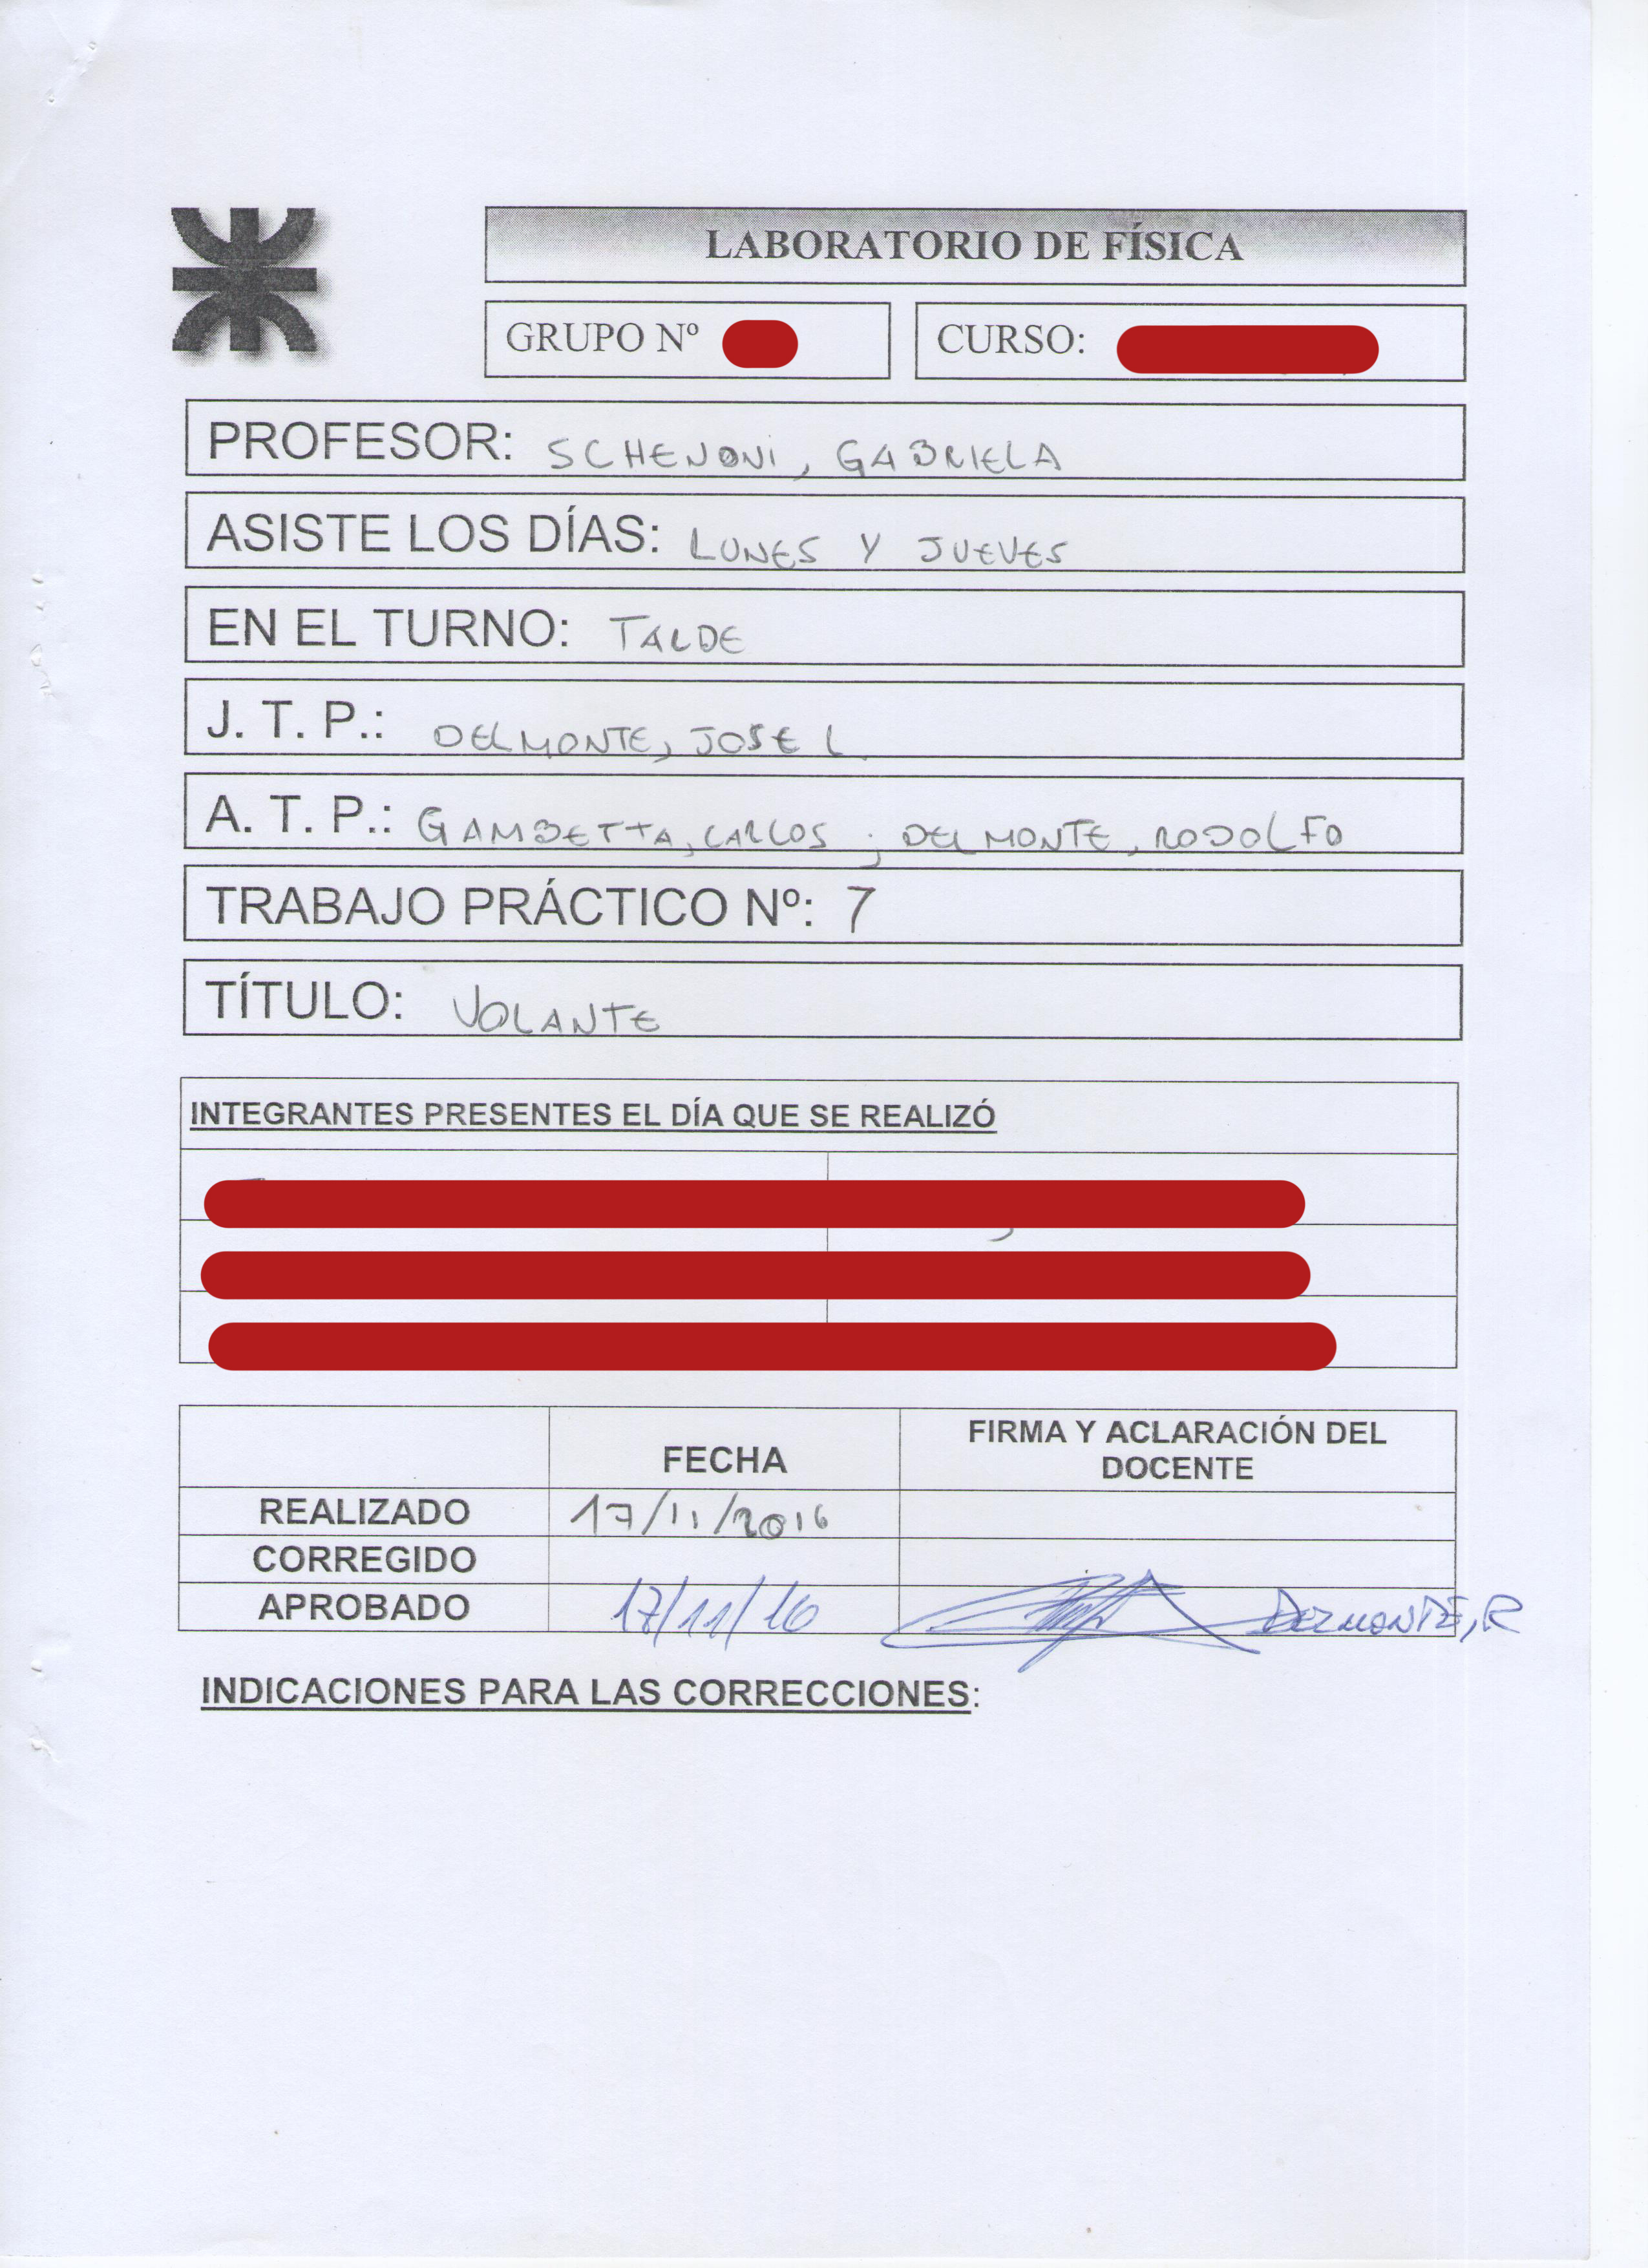 LABORATORIO DE FÍSICA
GRUPO Nº
CURSO:
PROFESOR: SCHENONI, GABRIELA
ASISTE LOS DÍAS: LUNES Y JUEVES
EN EL TURNO: TARDE
J. T. P.: DELMONTE, JOSE L
A. T. P.: GAMBETTA, CARLOS ; DELMONTE, RODOLFO
TRABAJO PRÁCTICO Nº: 7
TÍTULO: VOLANTE
INTEGRANTES PRESENTES EL DÍA QUE SE REALIZÓ
FECHA
FIRMA Y ACLARACIÓN DEL
DOCENTE
REALIZADO 17/11/2016
CORREGIDO
APROBADO 17/11/16 DELMONTE, R
INDICACIONES PARA LAS CORRECCIONES: